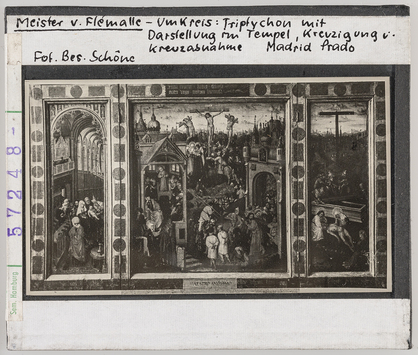 Meister v. Flémalle - Umkreis: Triptychon mit
Darstellung im Tempel, Kreuzigung u.
Kreuzabnahme Madrid Prado
Fot. Bes. Schöne
57248-
Sem. Hamburg